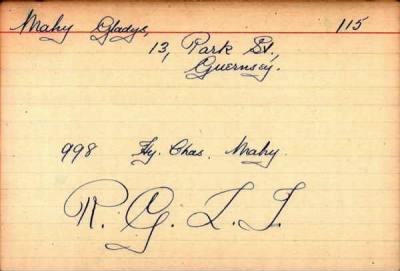 Mahy Gladys, 115
13, Park St.,
Guernsey.
998 Hy. Chas. Mahy.
R. G. L. I.